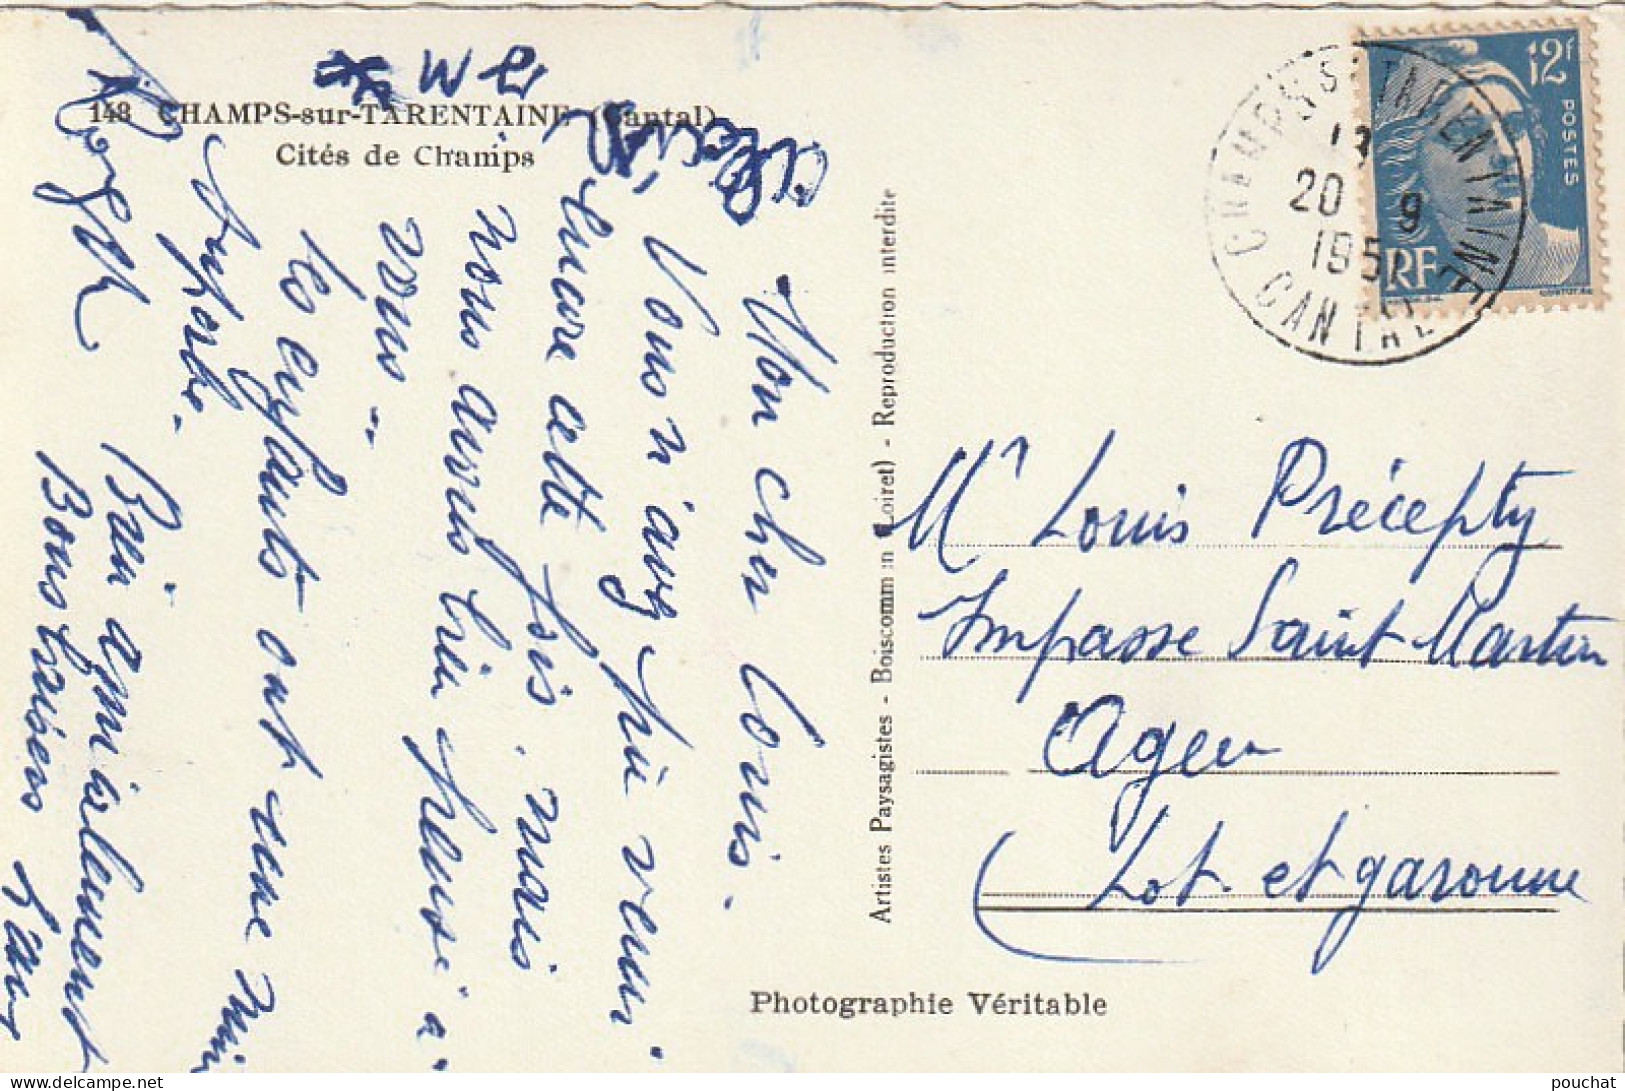 148 CHAMPS-sur-TARENTAINE (Cantal)
Cités de Champs
Mon cher Louis.
Vous n'avez pu venir
encore cette fois, mais
nous avons bien pensé à
vous -
les enfants ont une mine
superbe.
Bien amicalement
Bons baisers
Roger
Artistes Paysagistes - Boiscommun (Loiret) - Reproduction interdite
12f
POSTES
RF
CHAMPS S TARENTAINE
13
20 9
1951
CANTAL
Mr Louis Précepty
Impasse Saint Martin
Agen
Lot. et garonne
Photographie Véritable
delcampe.net
pouchat